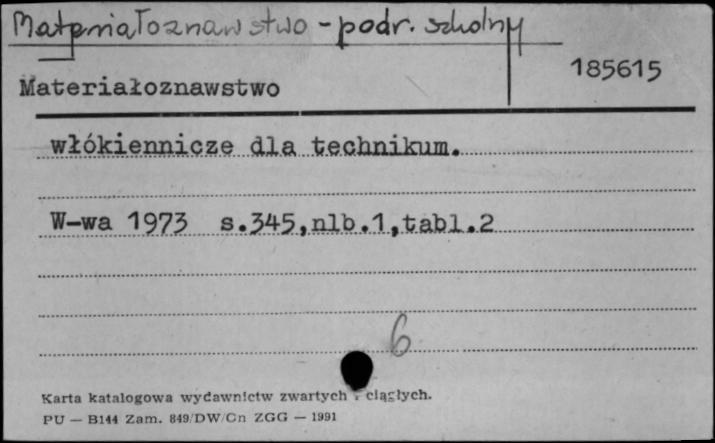 Materiałoznawstwo - podr. szkolny
185615
Materiałoznawstwo
włókiennicze dla technikum.
W-wa 1973 s.345,nlb.1,tabl.2
6
Karta katalogowa wydawnictw zwartych i ciągłych.
PU — B144 Zam. 849/DW/Gn ZGG — 1991